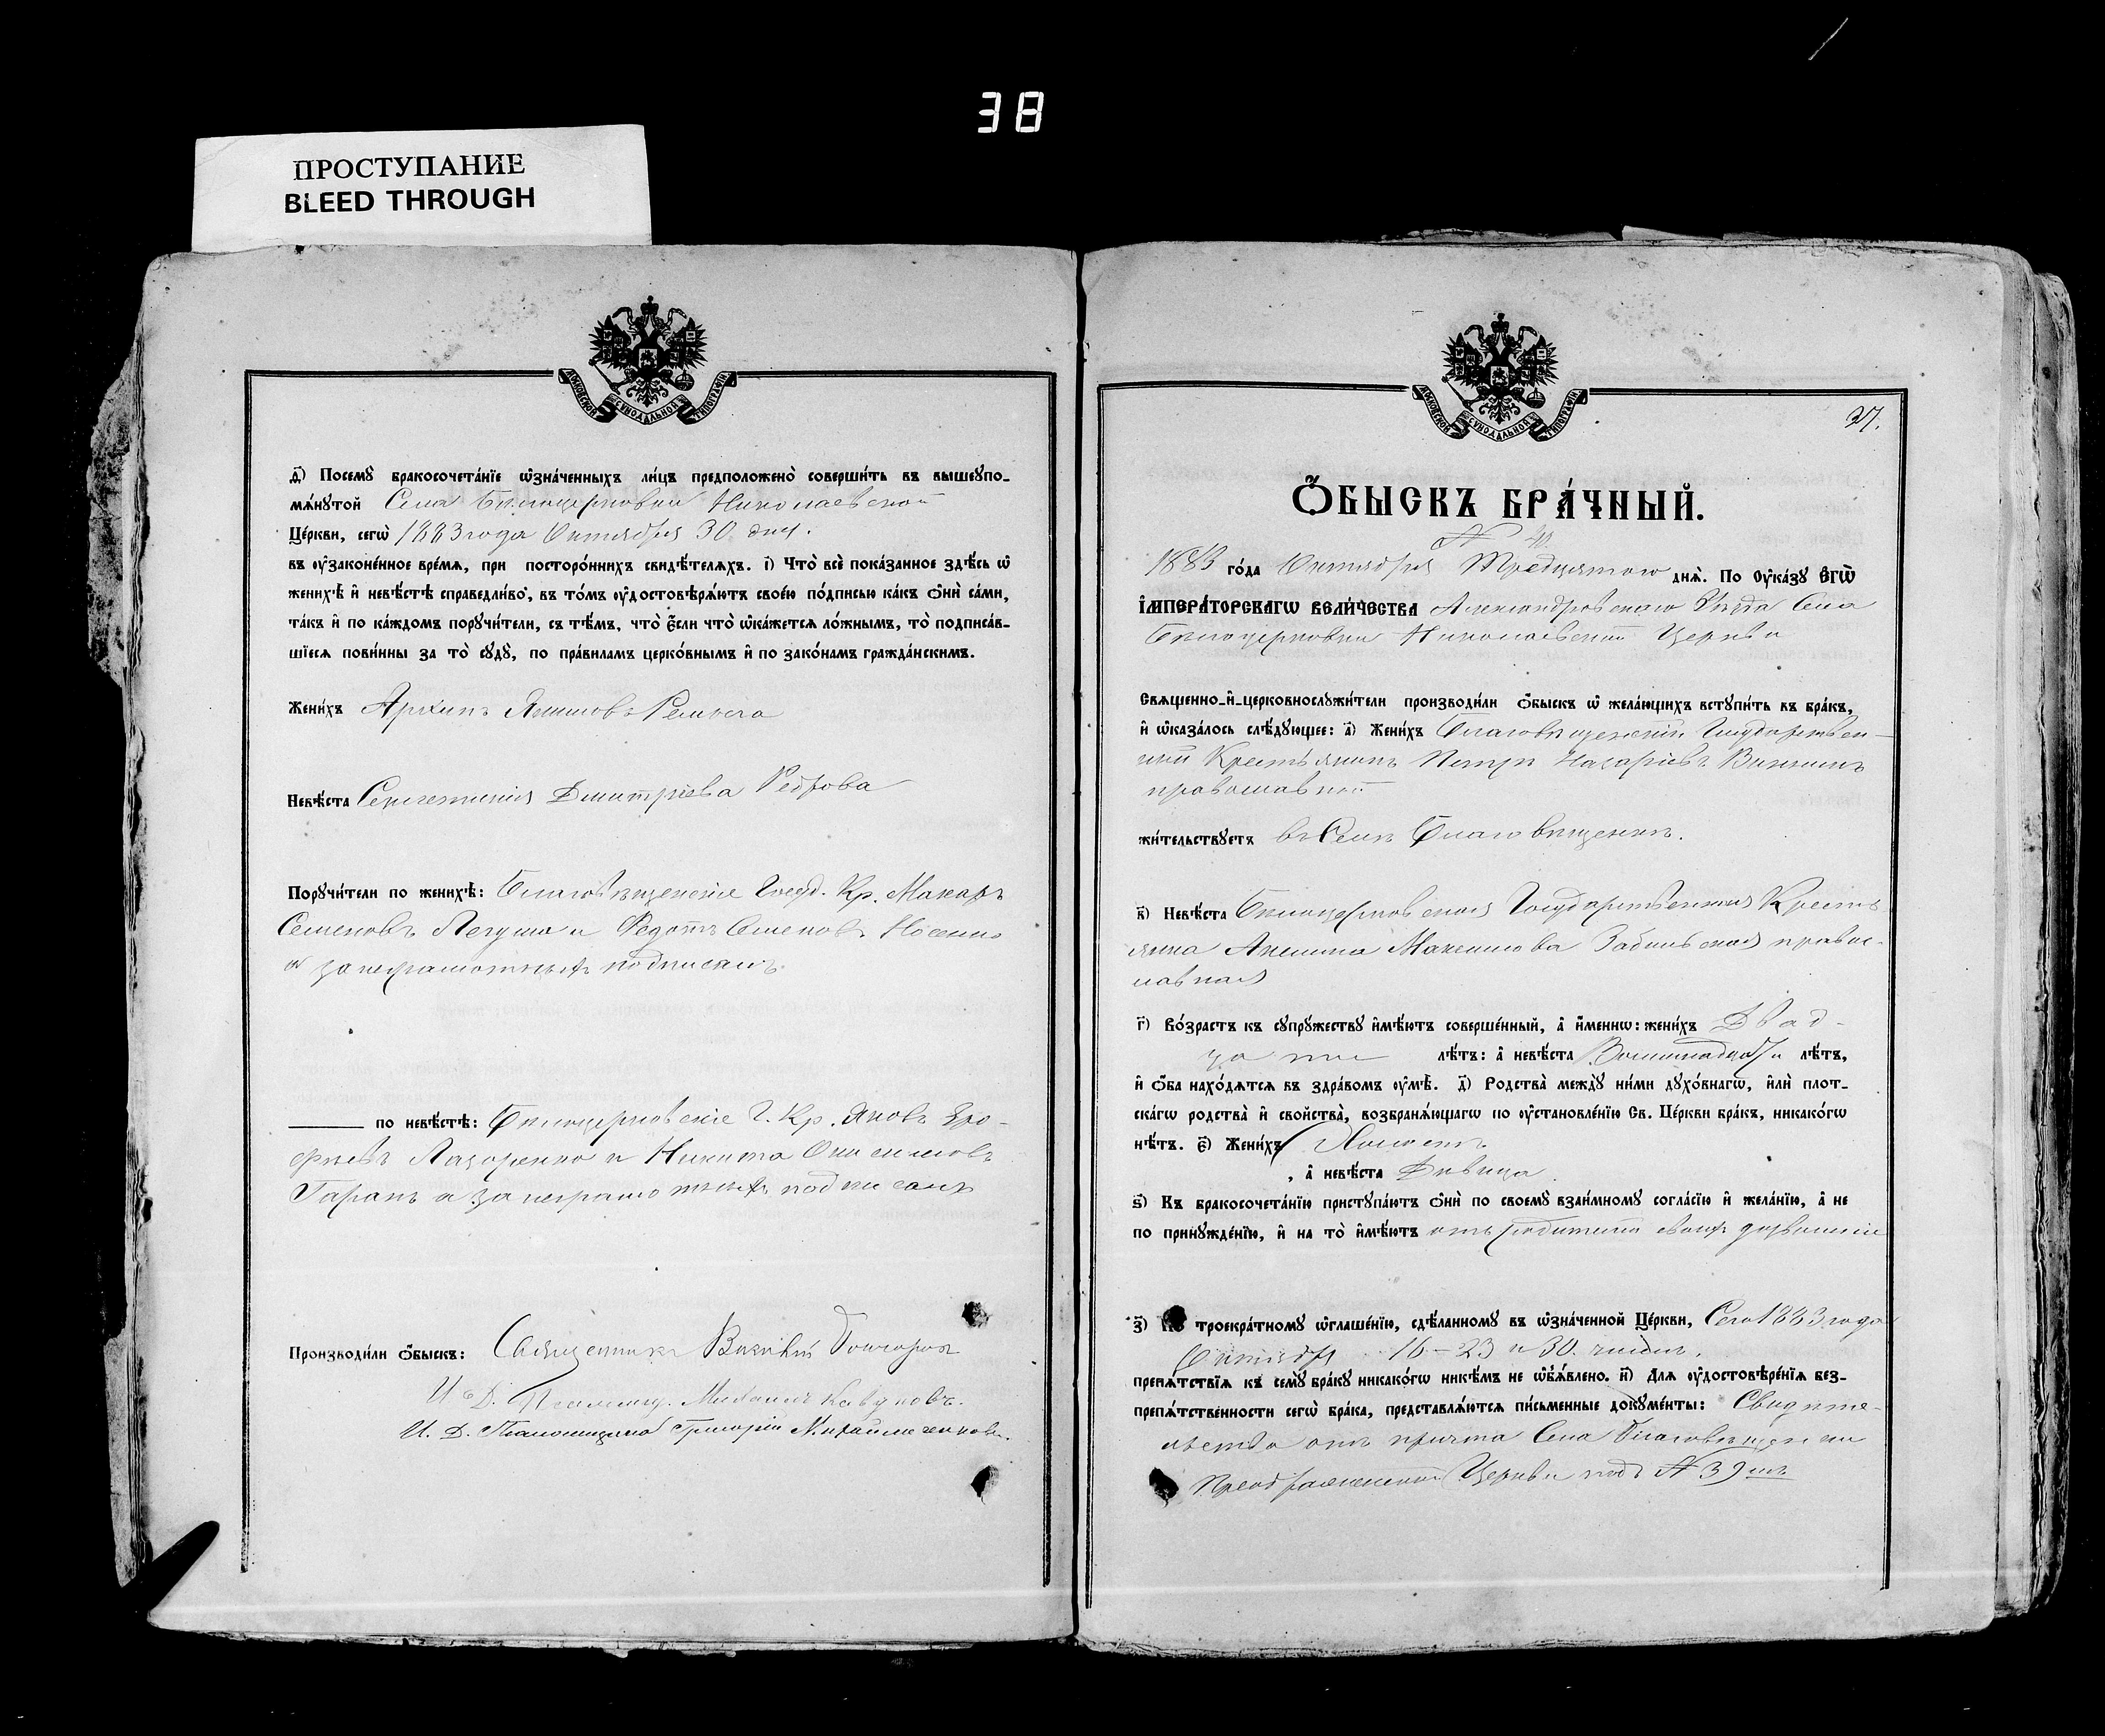 38
ПРОСТУПАНИЕ
BLEED THROUGH
МОСКОВСКОЙ СѴНОДАЛЬНОЙ ТИПОГРАФІИ
ѳ҃) Посемꙋ̀ бракосочета́нїе ѡ҆зна́ченныхъ ли́цъ предположено̀ соверши́ть въ вышеꙋпо-
мѧ́нꙋтой Села Бѣлоцерковки Николаевской
Це́ркви, сегѡ̀ 1883 года Октября 30 дня.
въ ᲂу҆зако́ненное вре́мѧ, при посторо́ннихъ свидѣ́телѧхъ. і҃) Что̀ всѐ пока́занное здѣ́сь ѡ҆
женихѣ̀ и҆ невѣ́стѣ справедли́во, въ то́мъ ᲂу҆достовѣрѧ́ютъ свое́ю по́дписью ка́къ ѻ҆нѝ са́ми,
та́къ и҆ по ка́ждомъ порꙋчи́тели, съ тѣ́мъ, что̀ є҆́сли что̀ ѡ҆ка́жетсѧ ло́жнымъ, то̀ подписа́в-
шїесѧ пови́нны за то̀ сꙋдꙋ̀, по пра́виламъ церко́внымъ и҆ по зако́намъ гражда́нскимъ.
Жени́хъ Архипъ Якимовъ
Невѣ́ста Дмитріева
Порꙋчи́тели по женихѣ̀: Благовѣщенскіе Госуд. Кр. Макаръ
Семеновъ и Федотъ Семеновъ
а за неграмотныхъ подписалъ
по невѣ́стѣ: Бѣлоцерковскіе Г. Кр. Яковъ Еро-
фѣевъ Лазоренко и Никита Онисимовъ
Гаранъ а за неграмотныхъ подписалъ
Производи́ли ѻ҆́быскъ: Священникъ
И. Д. Псаломщ. Михаилъ
И. Д. Псаломщика Григорій
МОСКОВСКОЙ СѴНОДАЛЬНОЙ ТИПОГРАФІИ
37.
Ѻ҆́БЫСКЪ БРА́ЧНЫЙ.
N 40
1883 го́да Октября Тредцятого днѧ̀. По ᲂу҆ка́зꙋ Е҆гѡ̀
І҆мпера́торскагѡ Вели́чества Александровскаго Уѣзда Села
Бѣлоцерковки Николаевской Церкви
Свѧще́нно-и҆-церковнослꙋжи́тели производи́ли ѻ҆́быскъ ѡ҆ жела́ющихъ встꙋпи́ть въ бра́къ,
и҆ ѡ҆каза́лось слѣ́дꙋющее: а҃) Жени́хъ Благовѣщенскій Государствен-
ный Крестьянинъ Петръ Назаріевъ
православной
жи́тельствꙋетъ въ Селѣ Благовѣщенкѣ.
в҃) Невѣ́ста Бѣлоцерковская Государственная Кресть
янка Акилина Максимова правос-
лавная
г҃) Во́зрастъ къ сꙋпрꙋ́жествꙋ и҆мѣ́ютъ соверше́нный, а҆ и҆́меннѡ: жени́хъ Двад-
цати лѣ́тъ: а҆ невѣ́ста Восемнадцати лѣ́тъ,
и҆ ѻ҆́ба нахо́дѧтсѧ въ здра́вомъ ᲂу҆мѣ̀. д҃) Родства̀ междꙋ̀ ни́ми дꙋхо́внагѡ, и҆лѝ плот-
ска́гѡ родства̀ и҆ сво́йства̀, возбранѧ́ющагѡ по ᲂу҆становле́нїю Св. Це́ркви бра́къ, никако́гѡ
нѣ́тъ. є҃) Жени́хъ Холостъ.
, а҆ невѣ́ста Дѣвица
ѕ҃) Къ бракосочета́нїю пристꙋпа́ютъ ѻ҆нѝ по своемꙋ̀ взаи́мномꙋ согла́сїю и҆ жела́нїю, а҆ не
по принꙋжде́нїю, и҆ на то̀ и҆мѣ́ютъ отъ родителей своихъ дозволеніе
з҃) По троекра́тномꙋ ѡ҆глаше́нїю, сдѣ́ланномꙋ въ ѡ҆зна́ченной Це́ркви, Сего 1883 года
Октября 16 – 23 и 30. числъ.
препѧ́тствїѧ къ семꙋ̀ бра́кꙋ никако́гѡ никѣ́мъ не ѡ҆б̾ѧ́влено. и҃) Длѧ̀ ᲂу҆достовѣре́нїѧ без-
препѧ́тственности сегѡ̀ бра́ка, представлѧ́ютсѧ пи́сьменные докꙋме́нты: Свидѣте-
льство отъ причта Села Благовѣщенки
Преображенской Церкви подъ N 39 мъ